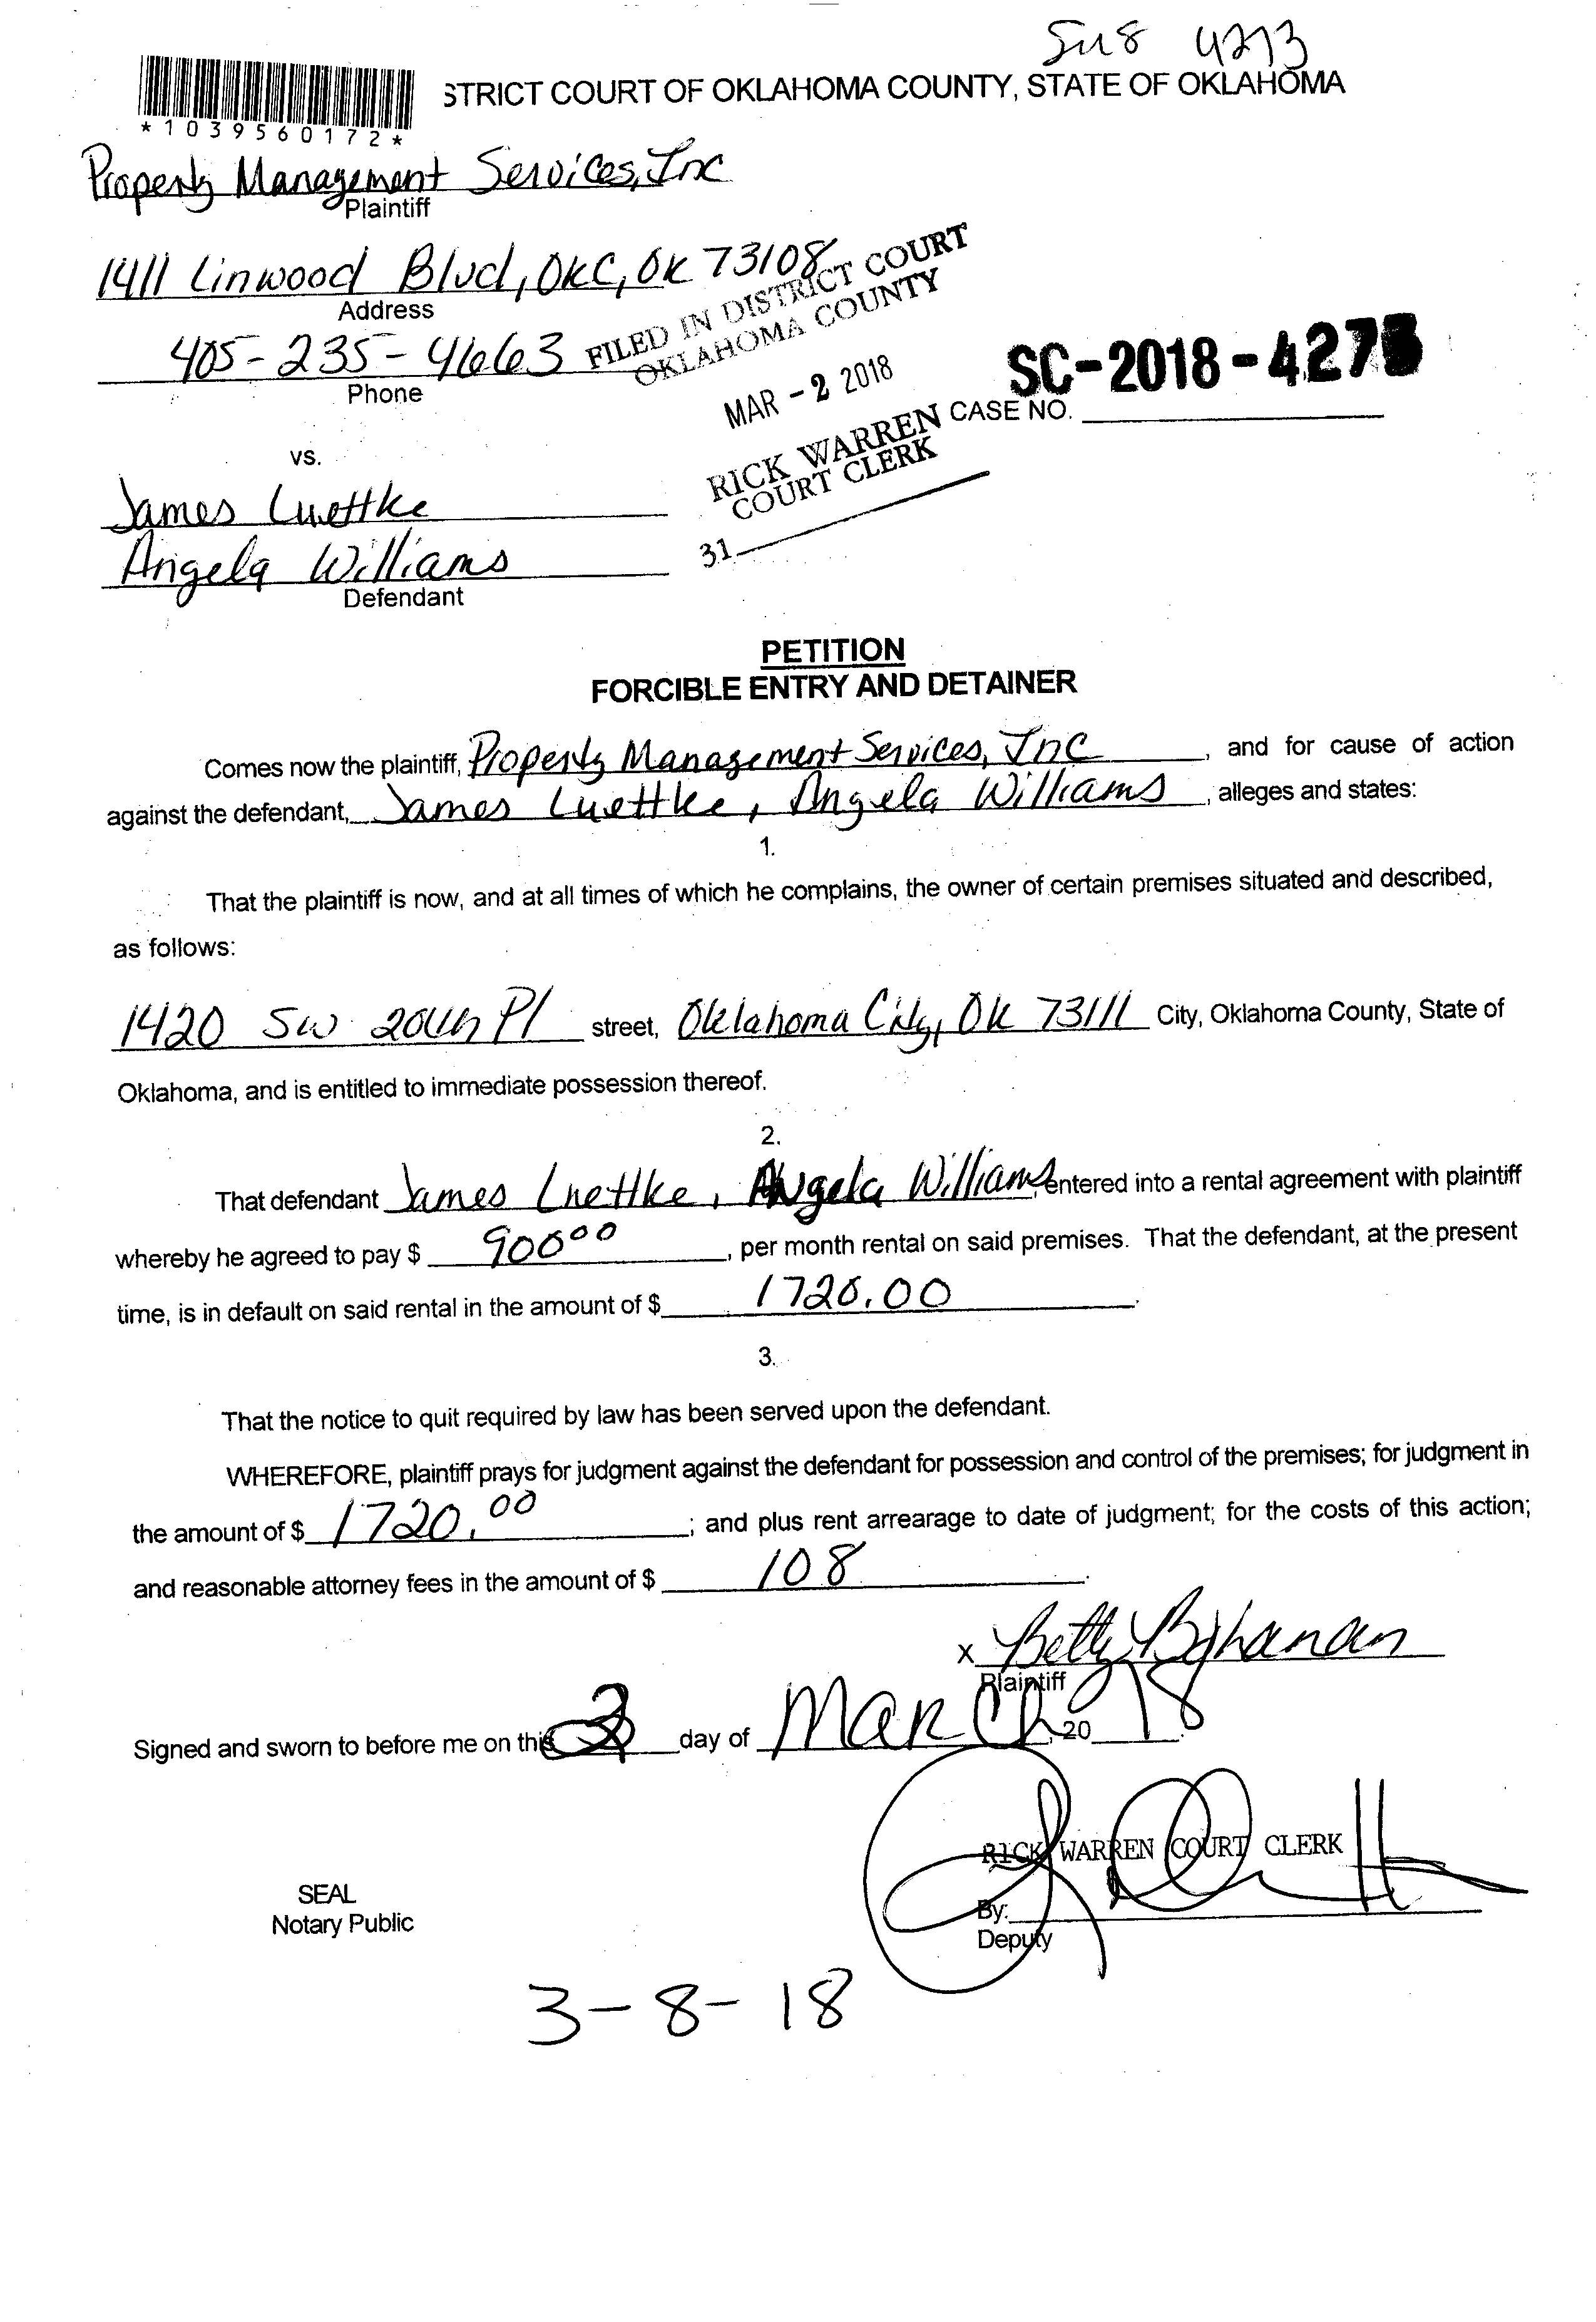 4273
STRICT COURT OF OKLAHOMA COUNTY, STATE OF OKLAHOMA
*1039560172*
Property Management Services, Inc
Plaintiff
1411 Linwood Blvd, OKC, OK 73108
Address
405-235-4663
Phone
FILED IN DISTRICT COURT
OKLAHOMA COUNTY
MAR - 2 2018
RICK WARREN
COURT CLERK
31
SC-2018-4273
CASE NO.
vs.
James Luettke
Angela Williams
Defendant
PETITION
FORCIBLE ENTRY AND DETAINER
Comes now the plaintiff, Property Management Services, Inc, and for cause of action
against the defendant, James Luettke, Angela Williams, alleges and states:
1.
That the plaintiff is now, and at all times of which he complains, the owner of certain premises situated and described,
as follows:
1420 SW 20th Pl street, Oklahoma City, OK 73111 City, Oklahoma County, State of
Oklahoma, and is entitled to immediate possession thereof.
2.
That defendant James Luettke, Angela Williams, entered into a rental agreement with plaintiff
whereby he agreed to pay $ 900 00, per month rental on said premises. That the defendant, at the present
time, is in default on said rental in the amount of $ 1720.00.
3.
That the notice to quit required by law has been served upon the defendant.
WHEREFORE, plaintiff prays for judgment against the defendant for possession and control of the premises; for judgment in
the amount of $ 1720.00; and plus rent arrearage to date of judgment; for the costs of this action;
and reasonable attorney fees in the amount of $ 108.
x Betty
Plaintiff
Signed and sworn to before me on this 2 day of March, 20 18.
RICK WARREN COURT CLERK
SEAL
Notary Public
By:
Deputy
3-8-18